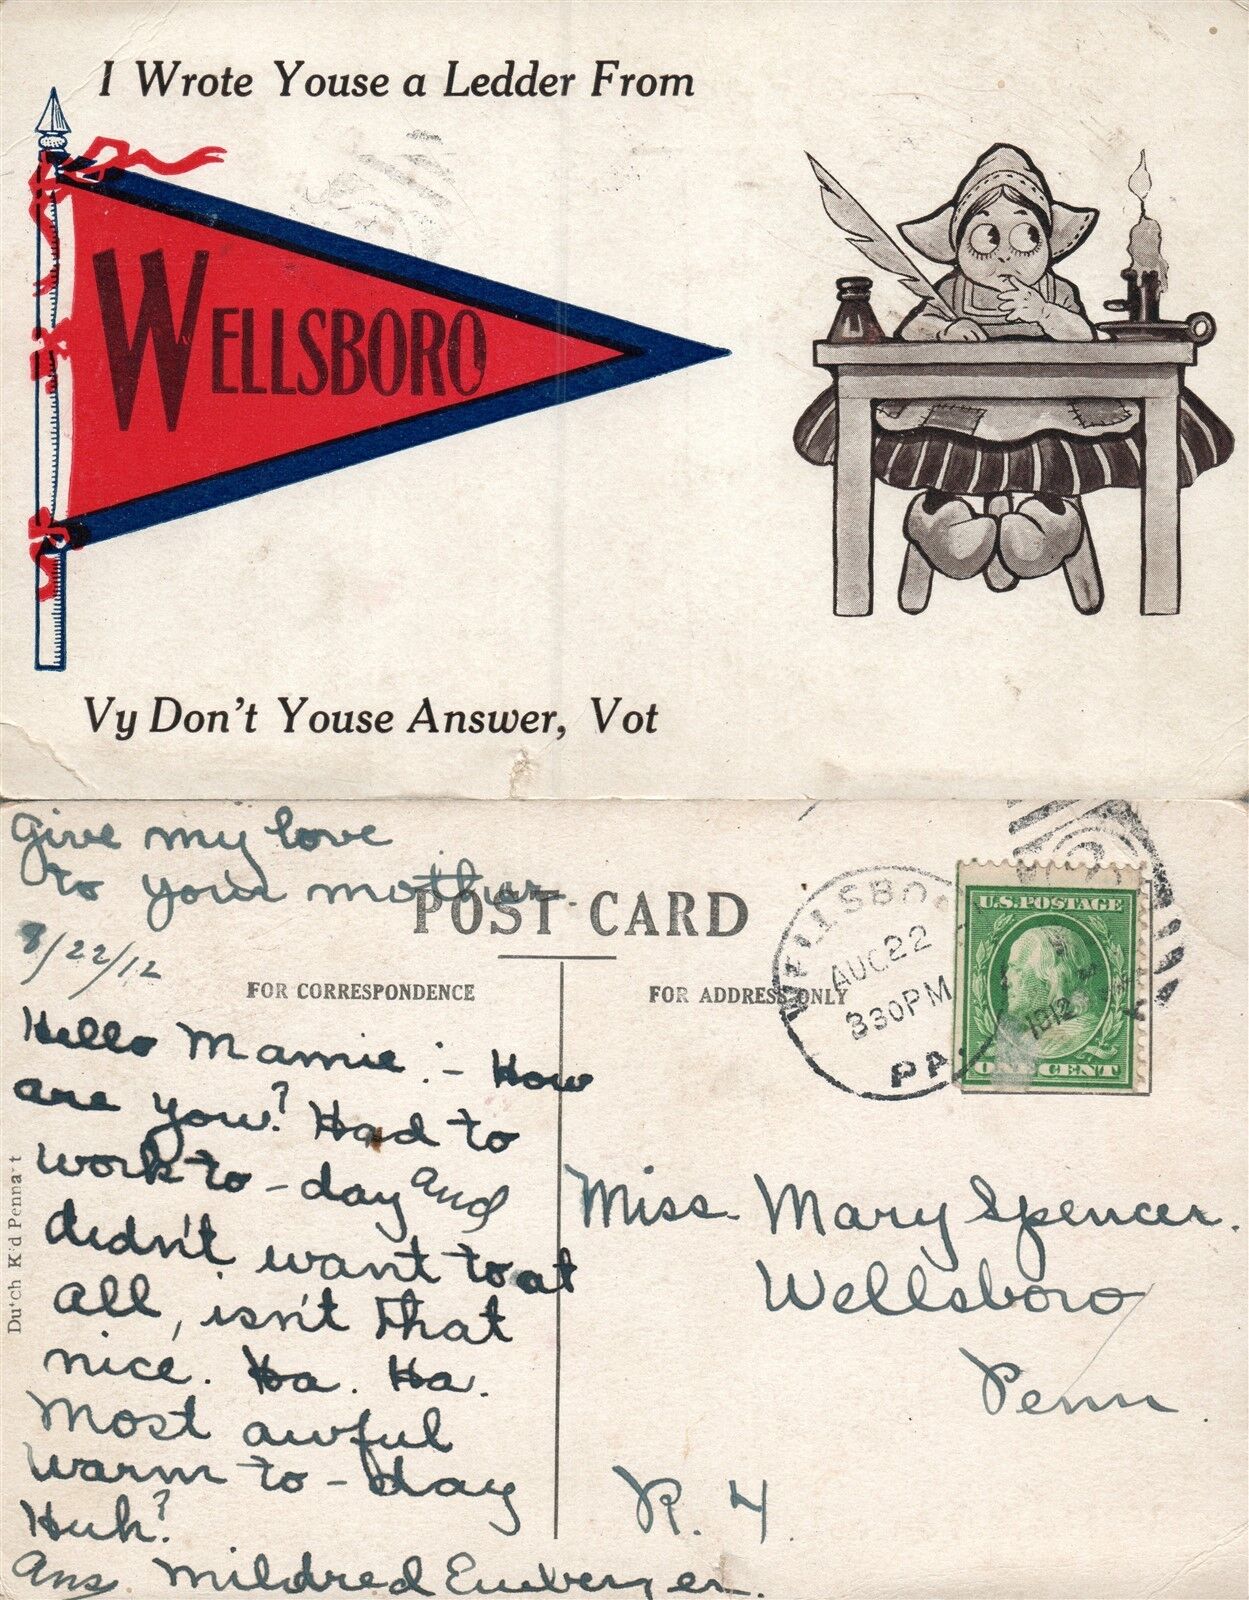 I Wrote Youse a Ledder From
WELLSBORO
Vy Don't Youse Answer, Vot
Give my love
to your mother.
POST CARD
8/22/12
FOR CORRESPONDENCE
FOR ADDRESS ONLY
WELLSBORO
AUG 22
330PM
1912
PA.
U.S. POSTAGE
ONE CENT
Hello Mamie:- How
are you? Had to
work to-day and
didn't want to at
all, isn't that
nice. Ha. Ha.
Most awful
warm to-day
Huh?
Ans. Mildred
Miss. Mary Spencer.
Wellsboro
Penn.
R. 4.
Dutch Kid Pennart